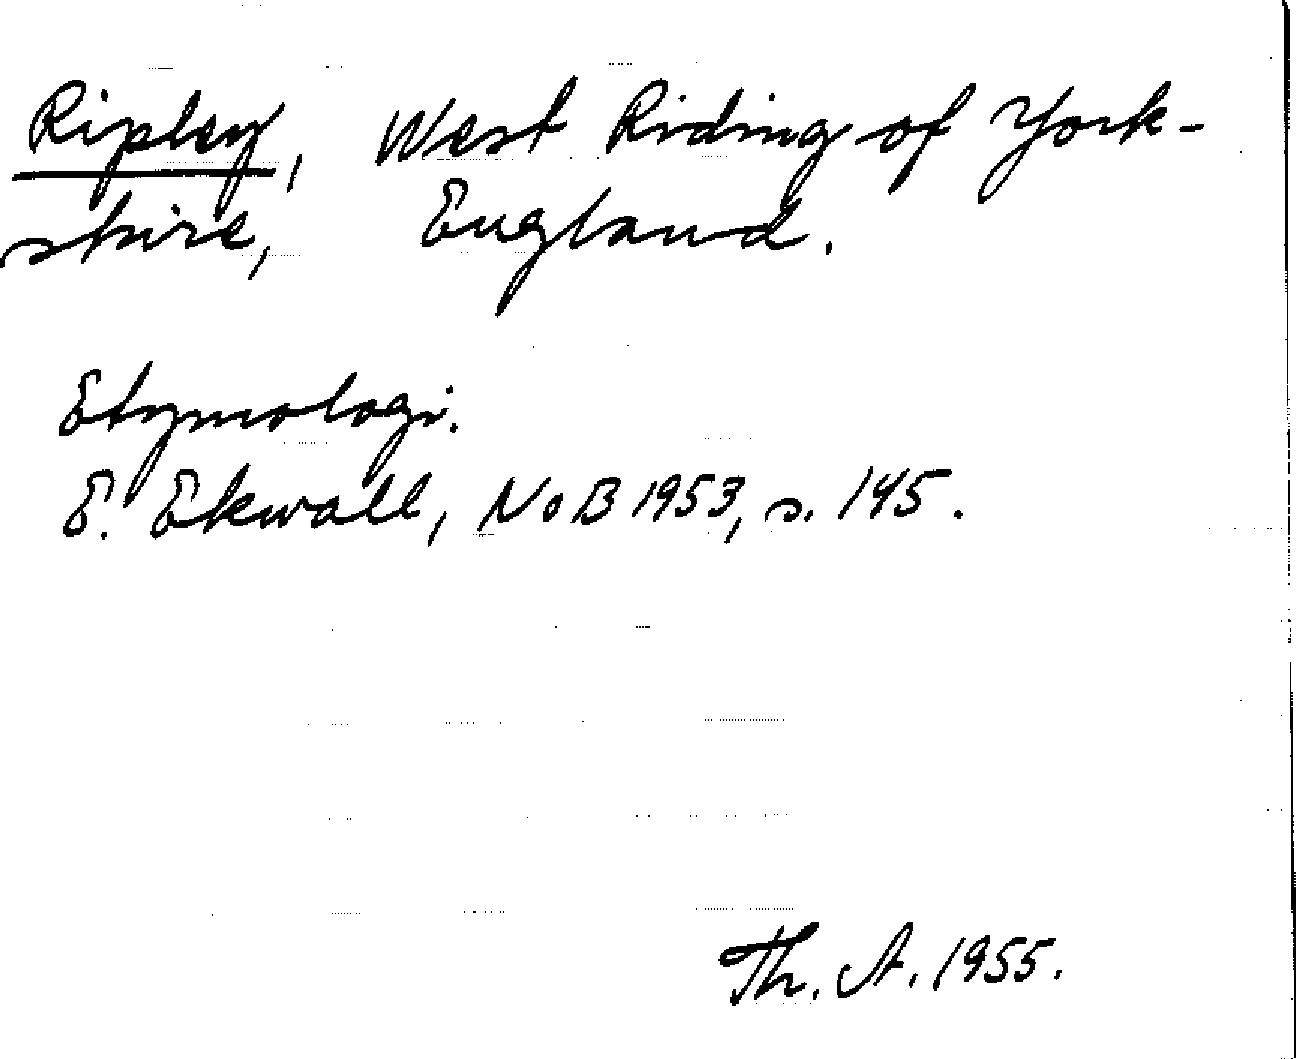 Ripley, West Riding of York-
shire, England.
Etymologi.
E. Ekwall, NoB 1953, s. 145.
Th. A. 1955.